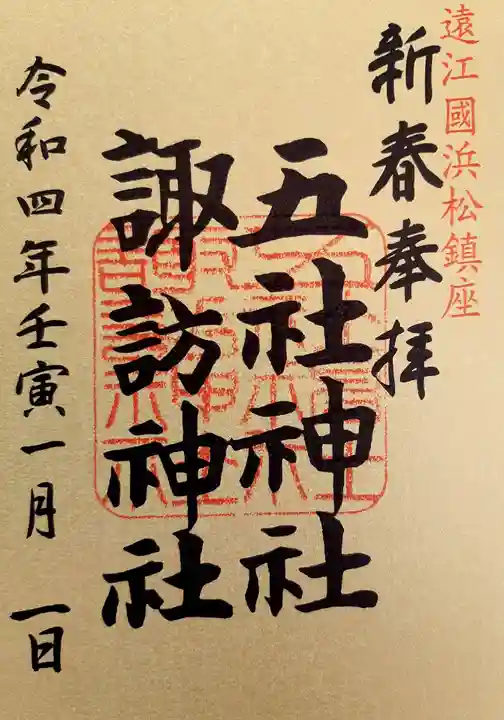 遠江國浜松鎮座
新春奉拝
五社神社
諏訪神社
令和四年壬寅一月一日